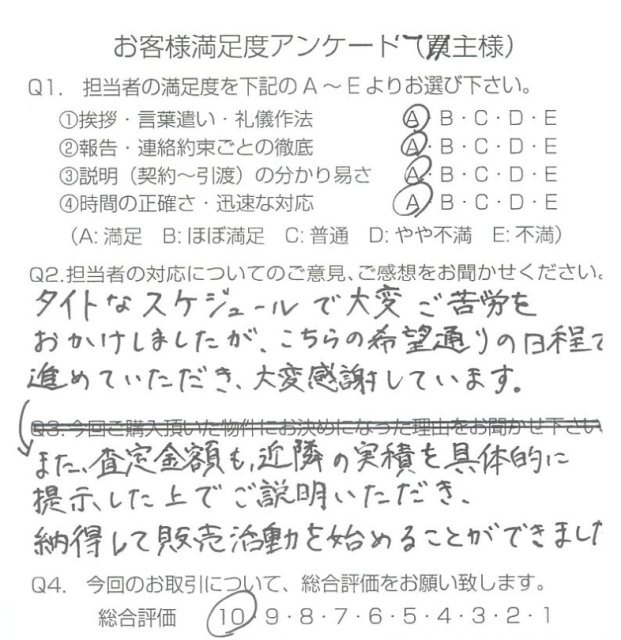 お客様満足度アンケート（買主様）
Q1. 担当者の満足度を下記のA～Eよりお選び下さい。
①挨拶・言葉遣い・礼儀作法 A・B・C・D・E
②報告・連絡約束ごとの徹底 A・B・C・D・E
③説明（契約～引渡）の分かり易さ A・B・C・D・E
④時間の正確さ・迅速な対応 A・B・C・D・E
（A: 満足 B: ほぼ満足 C: 普通 D: やや不満 E: 不満）
Q2.担当者の対応についてのご意見、ご感想をお聞かせください。
タイトなスケジュールで大変ご苦労を
おかけしましたが、こちらの希望通りの日程で
進めていただき、大変感謝しています。
Q3.今回ご購入頂いた物件にお決めになった理由をお聞かせ下さい
また、査定金額も、近隣の実積を具体的に
提示した上でご説明いただき、
納得して販売活動を始めることができました
Q4. 今回のお取引について、総合評価をお願い致します。
総合評価 10・9・8・7・6・5・4・3・2・1